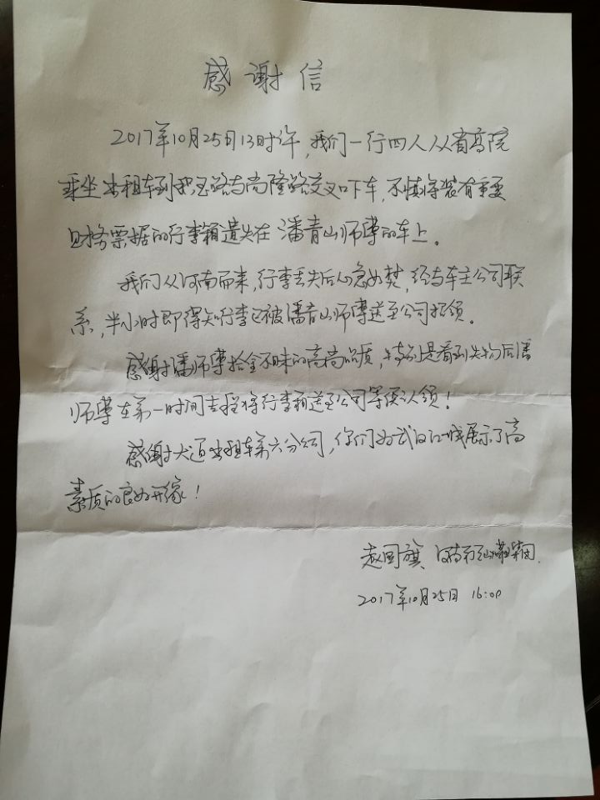 感谢信
2017年10月25日13时许,我们一行四人从省高院
乘坐出租车到 路与尚隆路交叉口下车,不慎将装有重要
财务票据的行李箱遗失在潘青山师傅的车上。
我们从河南而来,行李丢失后心急如焚,经与车主公司联
系,半小时即得知行李已被潘青山师傅送至公司招领。
感谢潘师傅拾金不昧的高尚品质,特别是看到失物后潘
师傅在第一时间直接将行李箱送至公司等候认领!
感谢大通出租车第六分公司,你们为武汉江城展示了高
素质的良好形象!
赵国旗
2017年10月25日 16:00